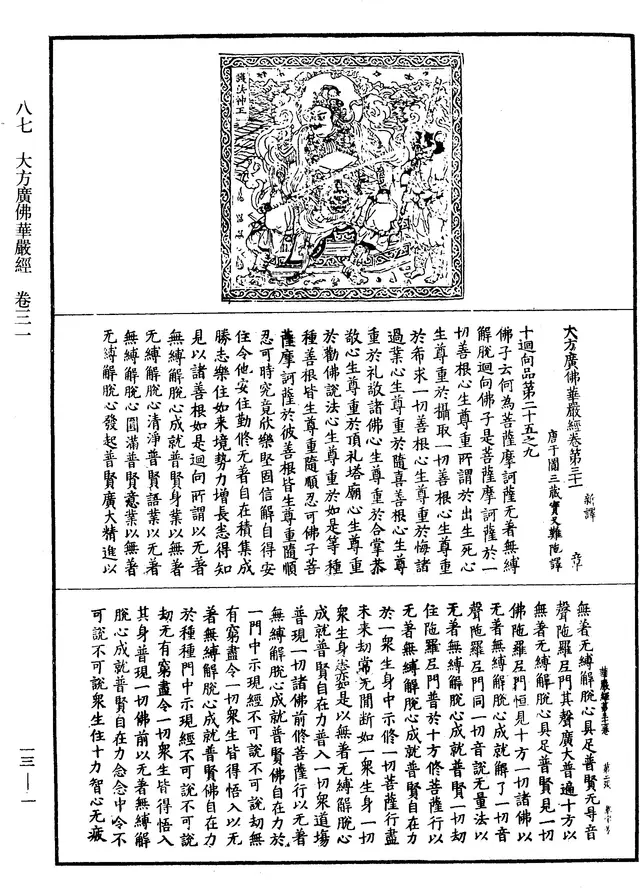 八七　大方廣佛華嚴經　卷三一
一三—一
護法神王
大方廣佛華嚴經卷第三十一　新譯　章
唐于闐三藏實叉難陁譯
十迴向品第二十五之九
佛子云何為菩薩摩訶薩无著無縛
解脫迴向佛子是菩薩摩訶薩於一
切善根心生尊重所謂於出生死心
生尊重於攝取一切善根心生尊重
於希求一切善根心生尊重於悔諸
過業心生尊重於隨喜善根心生尊
重於礼敬諸佛心生尊重於合掌恭
敬心生尊重於頂礼塔廟心生尊重
於勸佛說法心生尊重於如是等種
種善根皆生尊重隨順忍可佛子菩
薩摩訶薩於彼善根皆生尊重隨順
忍可時究竟欣樂堅固信解自得安
住令他安住勤修无著自在積集成
勝志樂住如来境勢力增長悉得知
見以諸善根如是迴向所謂以无著
無縛解脫心成就普賢身業以無著
无縛解脫心清淨普賢語業以无著
無縛解脫心圓滿普賢意業以無著
无縛解脫心發起普賢廣大精進以
無著无縛解脫心具足普賢无㝵音
聲陁羅尼門其聲廣大普遍十方以
無著无縛解脫心具足普賢見一切
佛陁羅尼門恒見十方一切諸佛以
无著無縛解脫心成就解了一切音
聲陁羅尼門同一切音說无量法以
无著無縛解脫心成就普賢一切劫
住陁羅尼門普於十方修菩薩行以
无著無縛解脫心成就普賢自在力
於一衆生身中示修一切菩薩行盡
未来劫常无間断如一衆生身一切
衆生身悉如是以無著无縛解脫心
成就普賢自在力普入一切衆道場
普現一切諸佛前修菩薩行以无著
無縛解脫心成就普賢佛自在力於
一門中示現經不可說不可說劫無
有窮盡令一切衆生皆得悟入以无
著無縛解脫心成就普賢佛自在力
於種種門中示現經不可說不可說
劫无有窮盡令一切衆生皆得悟入
其身普現一切佛前以无著無縛解
脫心成就普賢自在力念念中令不
可說不可說衆生住十力智心无疲